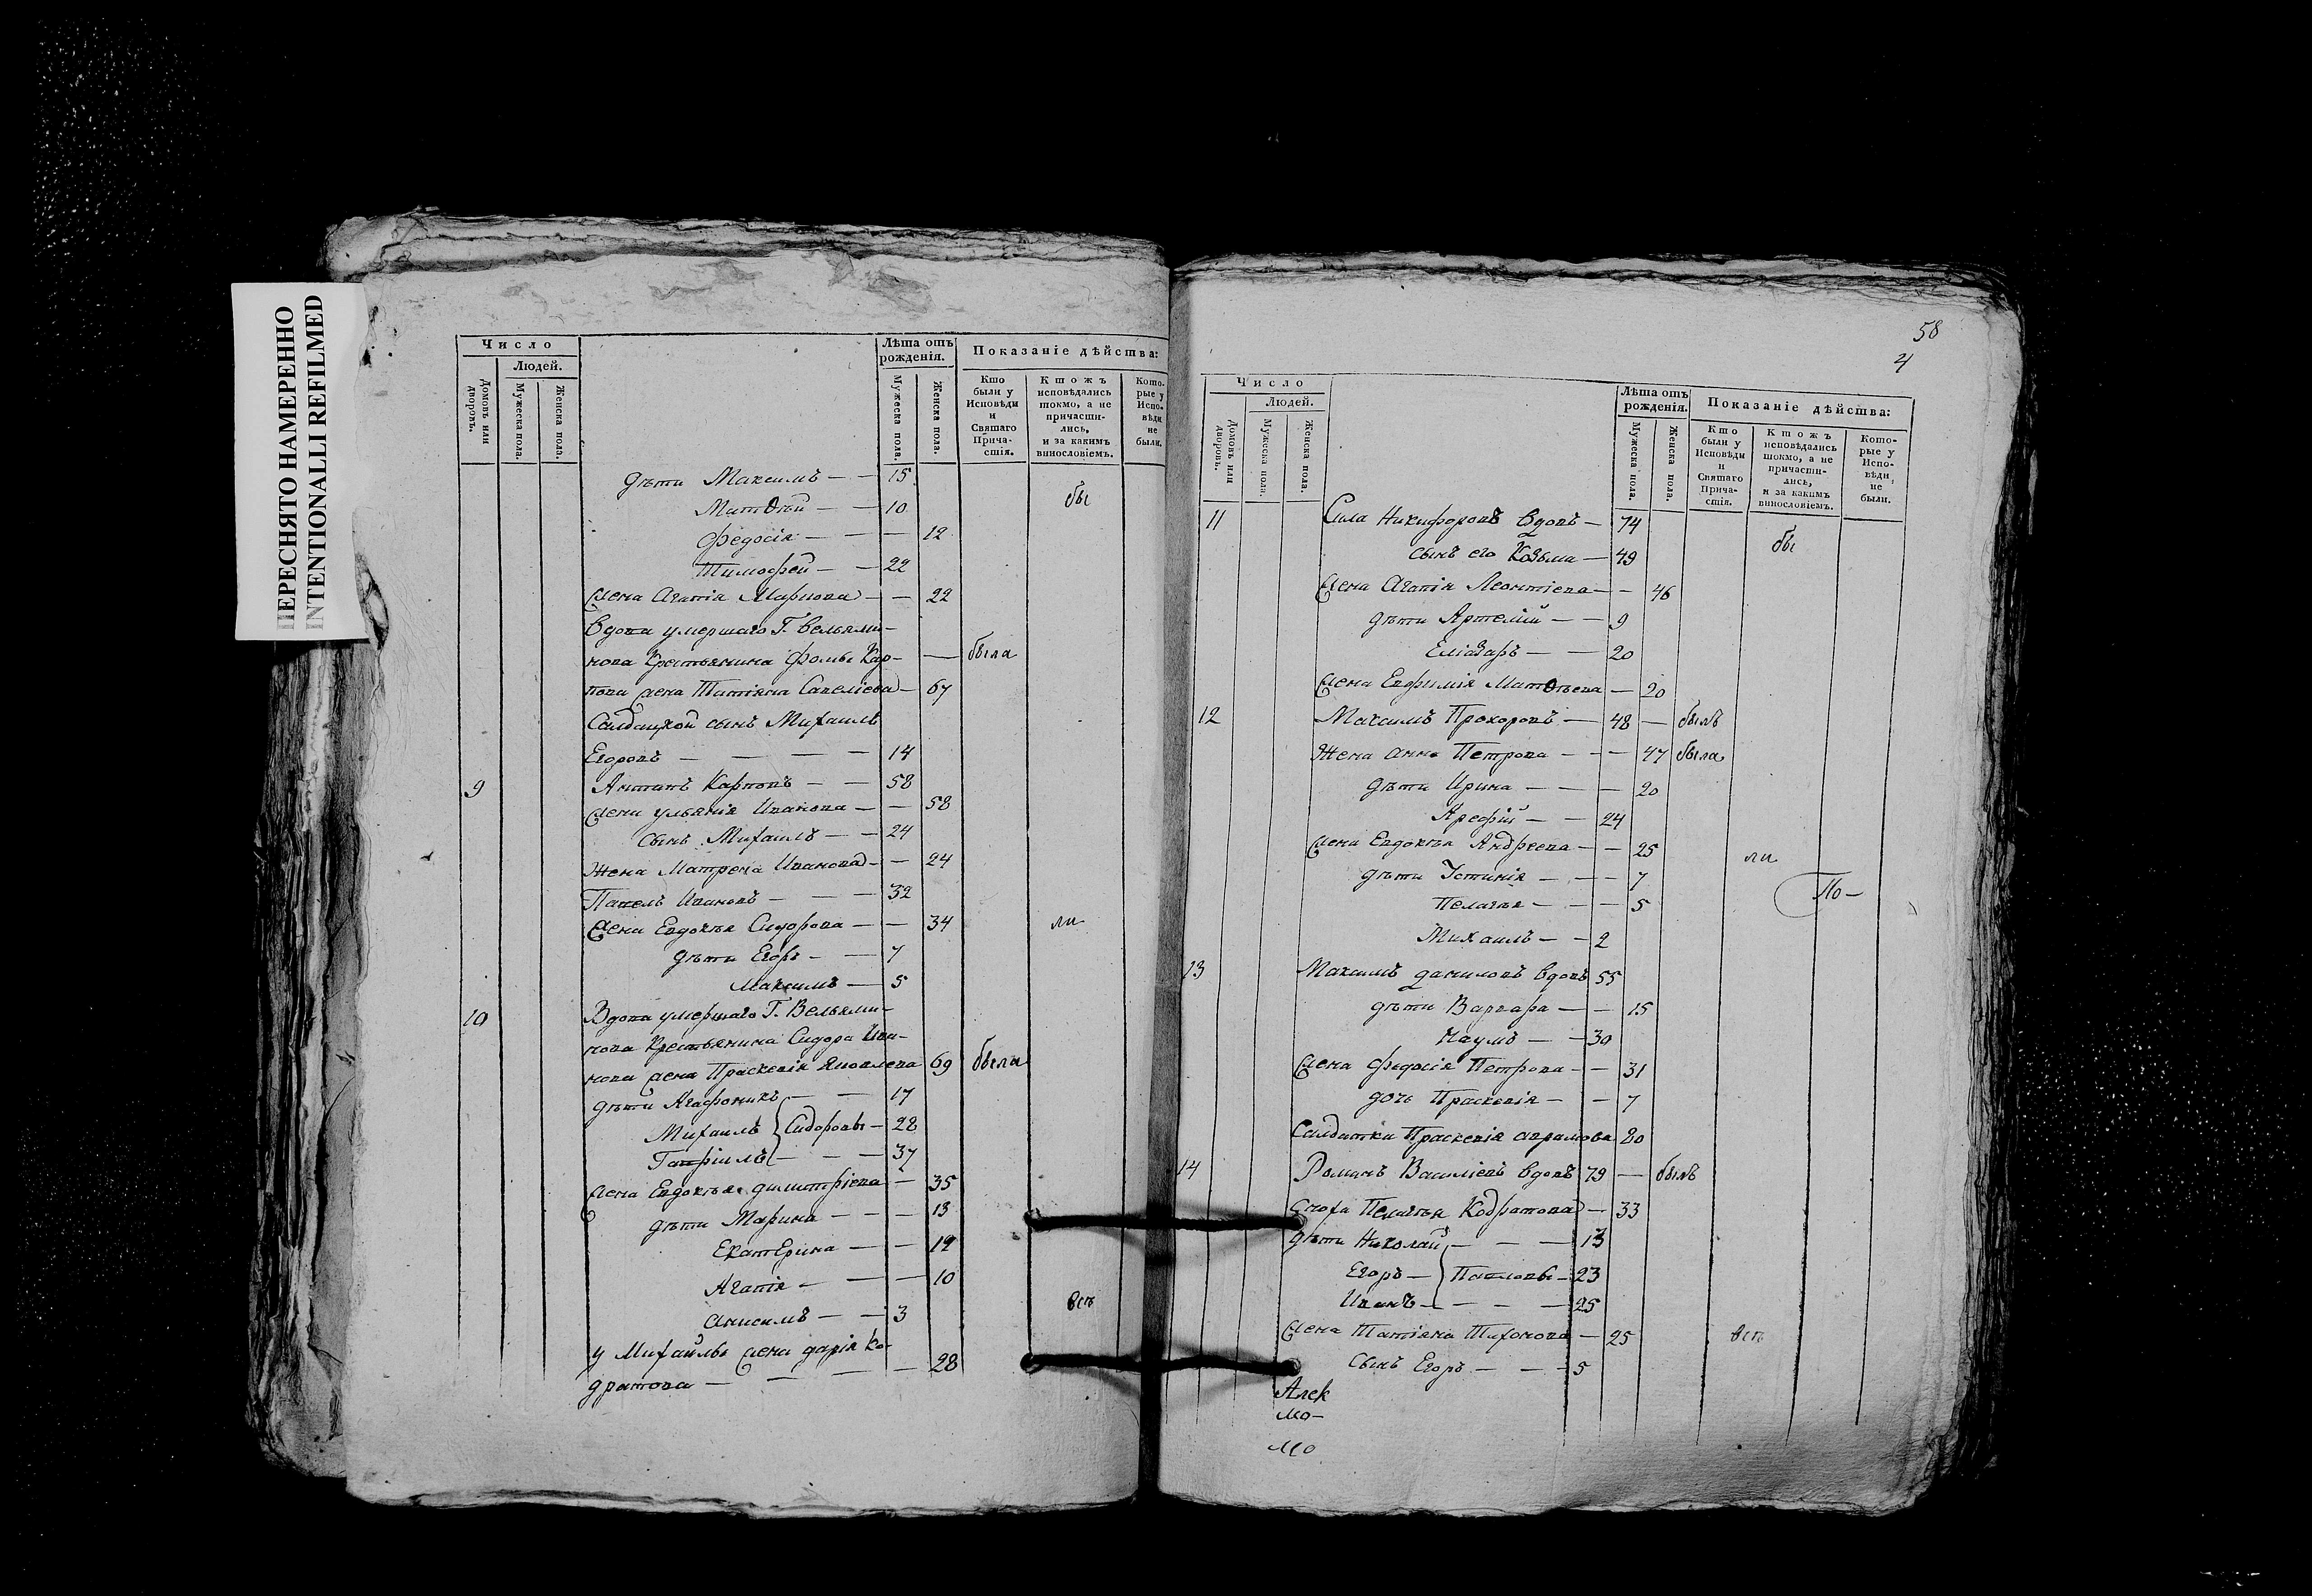 ПЕРЕСНЯТО НАМЕРЕННО
INTENTIONALLI REFILMED
Число
Людей.
Домовъ или дворовъ.
Мужеска пола.
Женска пола.
Лѣта отъ рожденія.
Мужеска пола.
Женска пола.
Показаніе дѣйства:
Кто были у Исповѣди и Святаго Прича-стія.
Ктожъ исповѣдались токмо, а не причасти-лись, и за какимъ винословіемъ.
Кото-рые у Испо-вѣди не были.
дѣти Максимъ — — 15
Матѳѣй — — 10 бы
Федосія — — — 12
Тимофей — — 22
жена Агапія Маркова — — 22
Вдова умершаго Г. Вельями-
нова Крестьянина Фомы Кар- — была
пова жена Татіана Савеліева — 67
Салдацкой сынъ Михаилъ
Егоровъ — — — — 14
9 Антипъ Карповъ — — 58
жена ульянія Иванова — — 58
сынъ Михаилъ — — 24
Жена Матрена Иванова — — 24
Павелъ Ивановъ — — — 32
жена Евдокѣя Сидорова — — 34 ли
дѣти Егоръ — — 7
Максимъ — 5
10 Вдова умершаго Г. Вельями-
нова Крестьянина Сидора Ива-
нова жена Праскевія Яковлева 69 была
дѣти Агафоникъ — — 17
Михаилъ Сидоровы — 28
Гавріилъ — — — 37
жена Евдокѣя димитріева — 35
дѣти Марина — — — 13
Екатерина — — 12
Агапія — — — 10
анисимъ — — 3 всѣ
у Михаилы жена дарія Ко-
дратова — — — — 28
58
4
Число
Людей.
Домовъ или дворовъ.
Мужеска пола.
Женска пола.
Лѣта отъ рожденія.
Мужеска пола.
Женска пола.
Показаніе дѣйства:
Кто были у Исповѣди и Святаго Прича-стія.
Ктожъ исповѣдались токмо, а не причасти-лись, и за какимъ винословіемъ.
Кото-рые у Испо-вѣди не были.
11 Сила Никифоровъ вдовъ — 74
сынъ его Козьма — 49 бы
жена Агапія Леонтіева — — 46
дѣти Артемій — — 9
Еліазаръ — — 20
жена Евфимія Матѳѣева — 20
12 Максимъ Прохоровъ — 48 — былъ
Жена анна Петрова — — — 47 была
дѣти Ирина — — — — 20
Арефій — — 24
жена Евдокѣя Андреева — — 25 ли
дѣти Устинія — — — 7
Пелагѣя — — — 5 По-
Михаилъ — — 2
13 Максимъ даниловъ вдовъ 55
дѣти Варвара — — 15
Наумъ — — 30
жена Федосія Петрова — — 31
дочь Праскевія — — 7
Салдатка Праскевія аврамова 20
14 Романъ Василіевъ вдовъ 79 — былъ
сноха Пелагѣя Кодратова — 33
дѣти Николай — — — 13
Егоръ — Павловы — 23
Иванъ — — — — 25
жена Татіана Тихонова — 25 всѣ
сынъ Егоръ — — — 5
Алек
мо-
мо